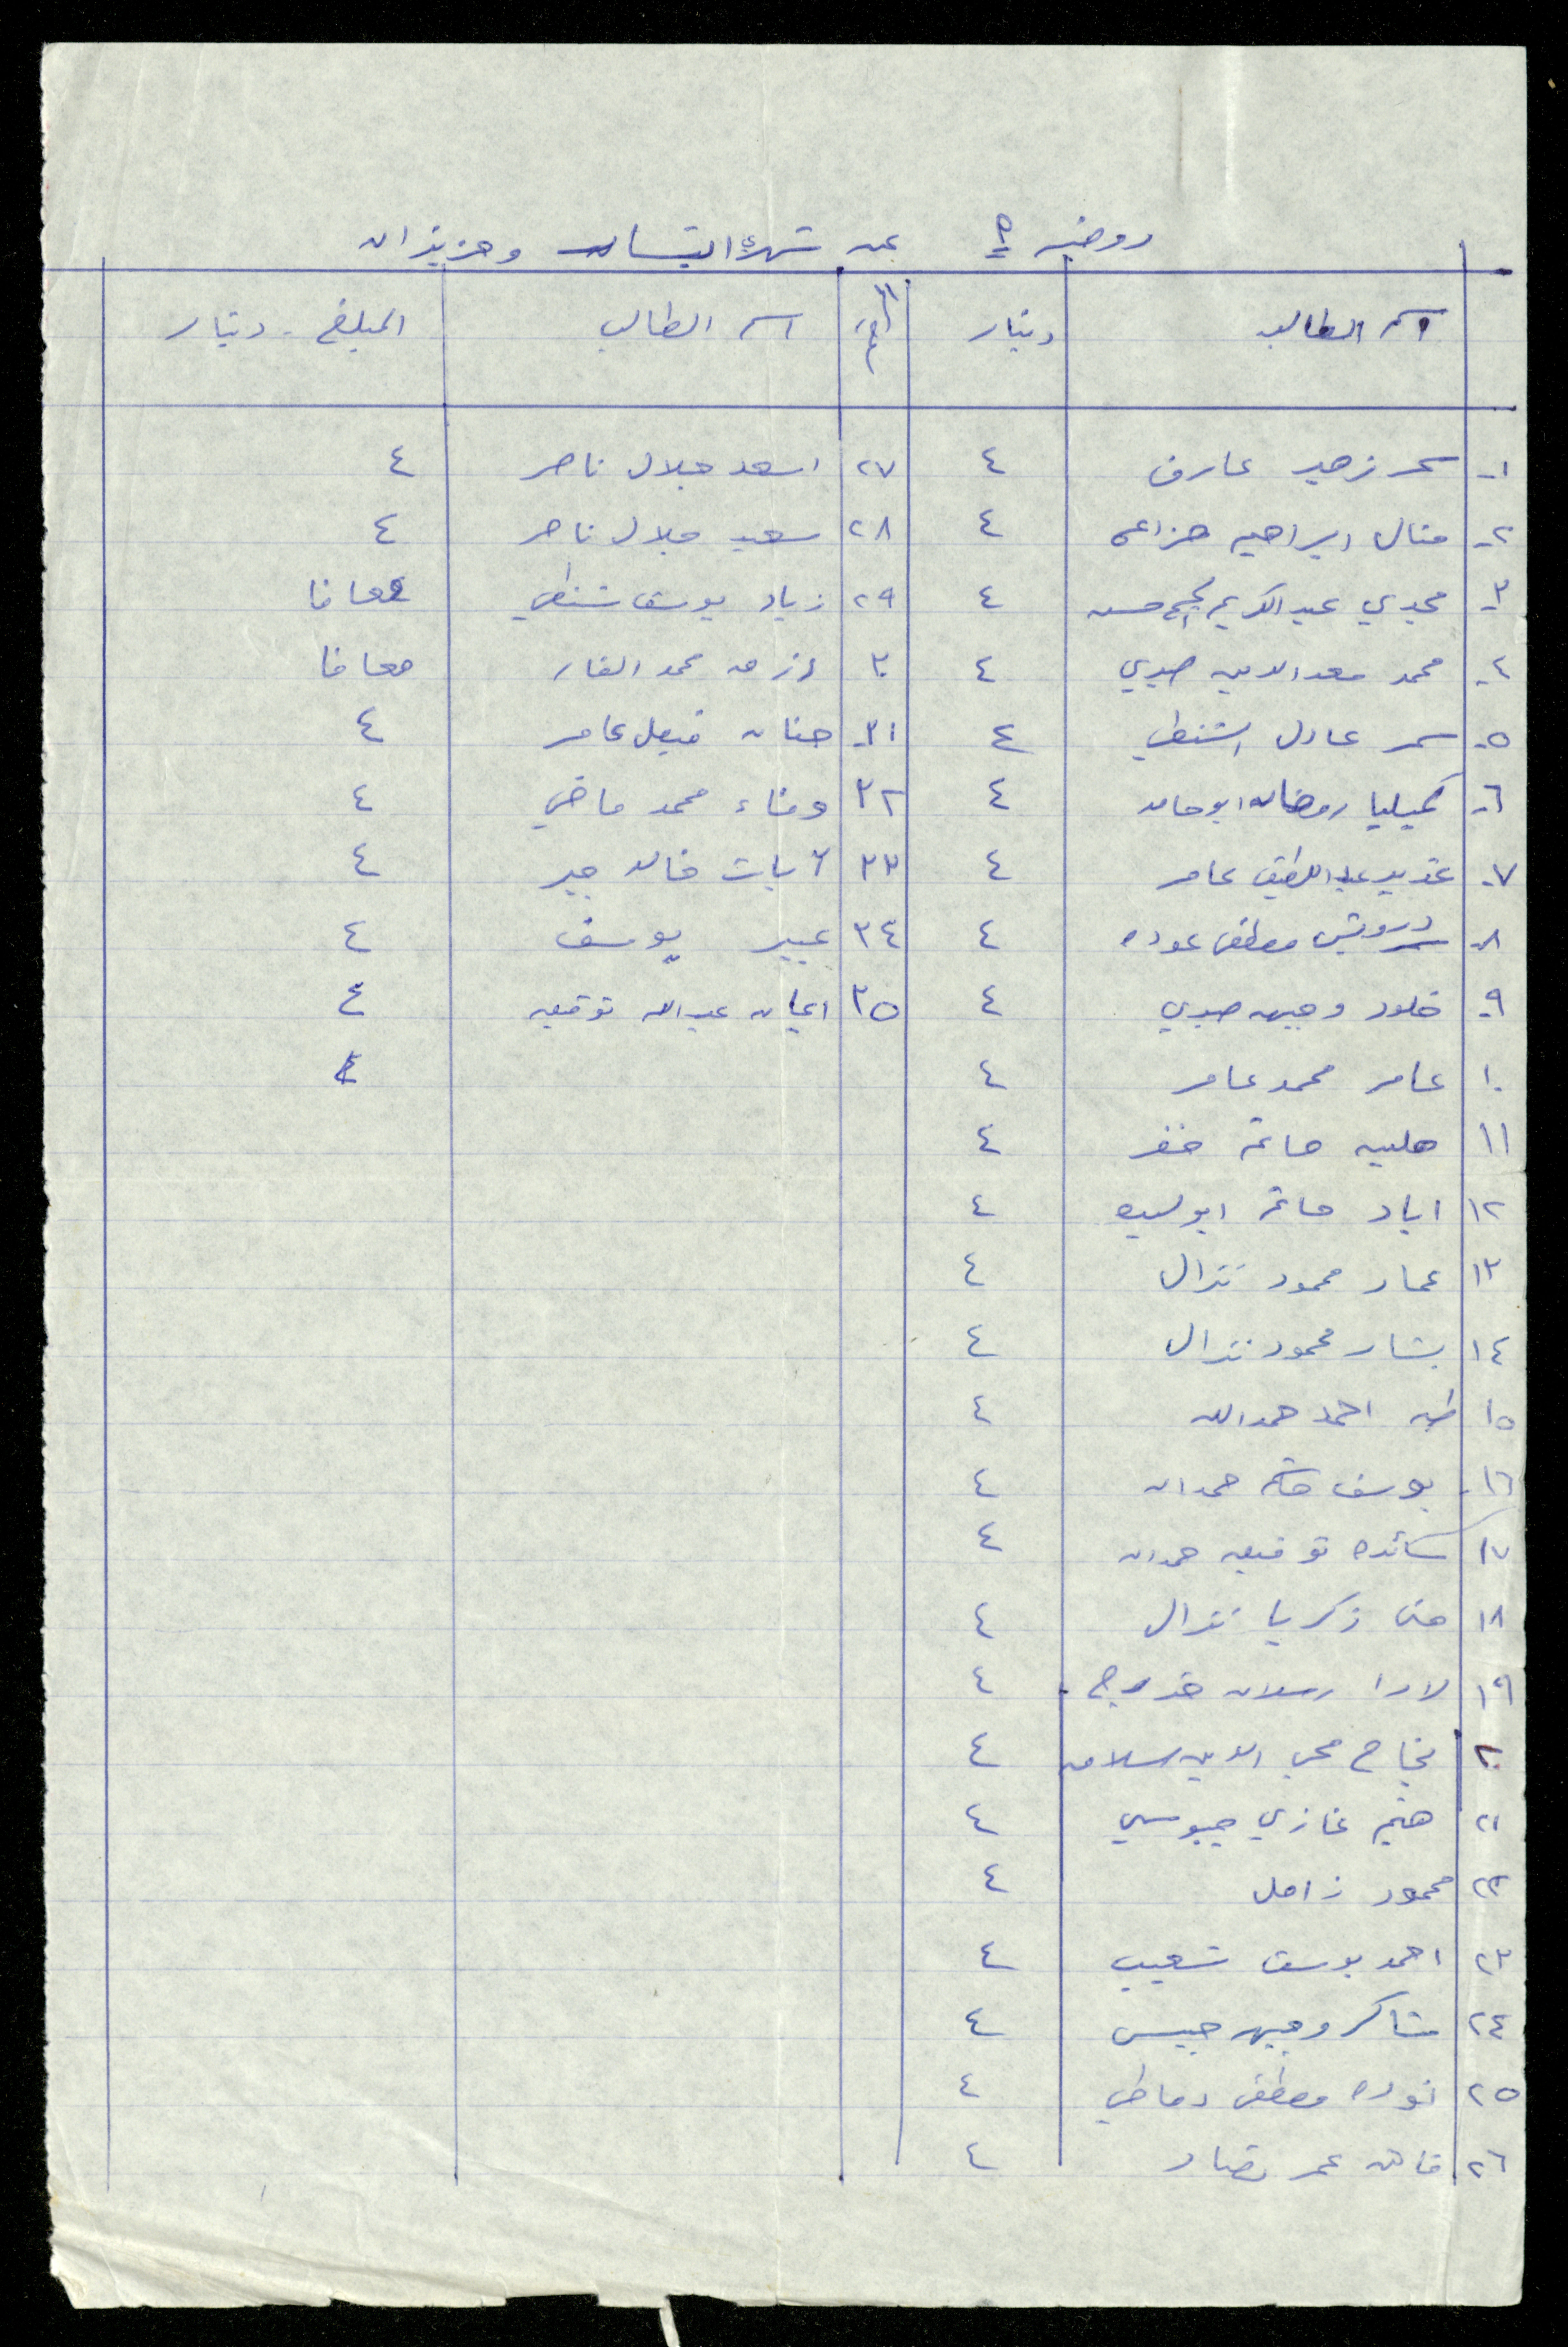 روضة عن شهري نيسان وحزيران
اسم الطالب دينار الرقم اسم الطالب المبلغ - دينار
١- سحر زهير عارف ٤ ٢٧ اسعد جلال ناصر ٤
٢- منال ابراهيم خزاعي ٤ ٢٨ سعيد جلال ناصر ٤
٣- مجدي عبد الكريم الحج حسن ٤ ٢٩ زياد يوسف شنطي معافا
٤- محمد سعد الدين صبري ٤ ٣٠ محمد الفار معافا
٥- سمر عادل الشنطي ٤ ٣١- حنان فيصل عامر ٤
٦- كميليا رمضان ابو حامد ٤ ٣٢ وفاء محمد ماضي ٤
٧- غدير عبد اللطيف عامر ٤ ٣٣ آيات خالد جبر ٤
٨- درويش مصطفى عوده ٤ ٣٤ عبير يوسف ٤
٩- خلود وجيه صبري ٤ ٣٥ ايمان عبد الله توفيق ٤
١٠ عامر محمد عامر ٤ ٤
١١ حاتم خضر ٤
١٢ اياد حاتم ابو لبده ٤
١٣ عمار محمود نزال ٤
١٤ بشار محمود نزال ٤
١٥ احمد حمد الله ٤
١٦- يوسف حمدان ٤
١٧ سائده توفيق حمدان ٤
١٨ منى زكريا نزال ٤
١٩ لارا رسلان خدرج ٤
٢٠ نجاح محي الدين سلامه ٤
٢١ هيثم غازي جيوسي ٤
٢٢ محمود زامل ٤
٢٣ احمد يوسف شعيب ٤
٢٤ شاكر وجيه حبيس ٤
٢٥ نوره مصطفى دماطي ٤
٢٦ عمر نصار ٤